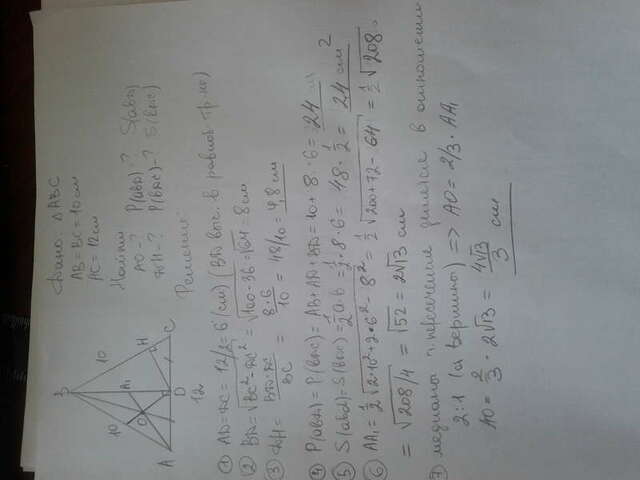 Дано: △ABC
AB = BC = 10 см
AC = 12 см
Найти:
AO - ? P(ABD) - ? S(ABD)
DH - ? P(BDC) - ? S(BDC)
Решение:
B
10
10
A₁
O
H
A
D
C
12
① AD = DC = 12/2 = 6 (см) (BD выс. в равноб. тр-ке)
② BD = √BC² - DC² = √100 - 36 = √64 = 8 см
③ DH = BD · DC / BC = 8 · 6 / 10 = 48/10 = 4,8 см
④ P(ABD) = P(BDC) = AB + AD + BD = 10 + 8 + 6 = 24 см
⑤ S(ABD) = S(BDC) = 1/2 a · b = 1/2 · 8 · 6 = 48 · 1/2 = 24 см²
⑥ AA₁ = 1/2 √2 · 10² + 2 · 6² - 8² = 1/2 √200 + 72 - 64 = 1/2 √208 =
= √208/4 = √52 = 2√13 см
⑦ медианы пересечения делятся в отношении
2:1 (от вершины) => AO = 2/3 · AA₁
AO = 2/3 · 2√13 = 4√13/3 см